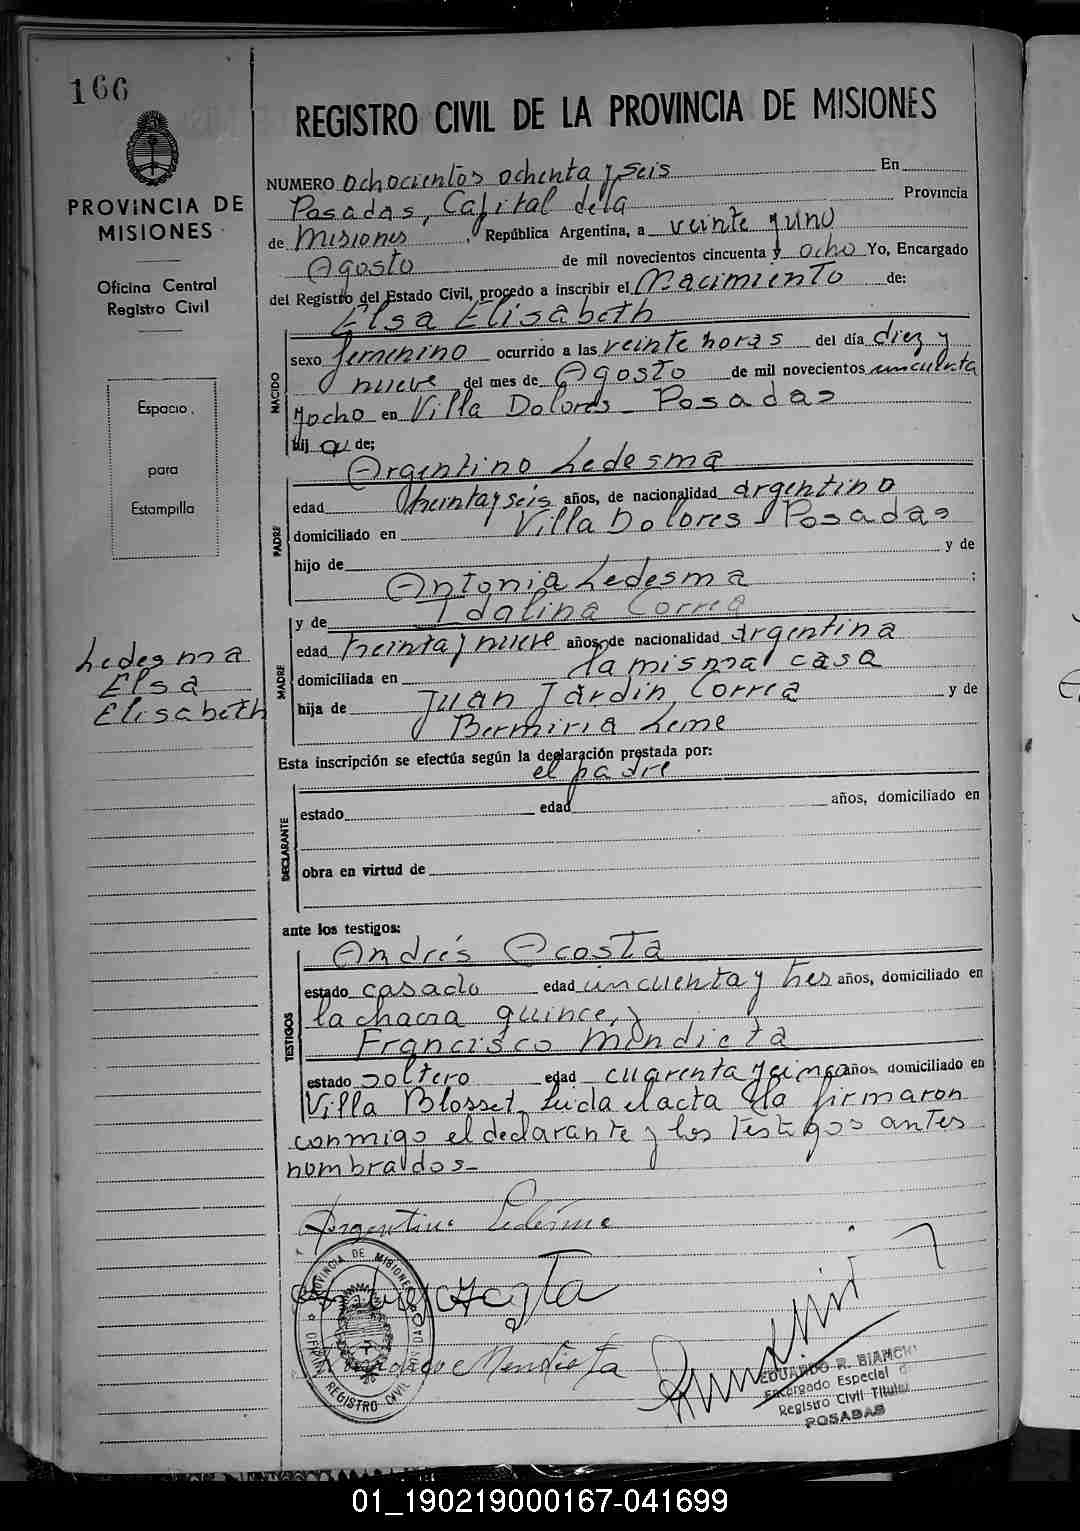 166
REGISTRO CIVIL DE LA PROVINCIA DE MISIONES
PROVINCIA DE
MISIONES
Oficina Central
Registro Civil
Espacio
para
Estampilla
Ledesma
Elsa
Elisabeth
NUMERO ochocientos ochenta y seis En
Posadas, Capital de la Provincia
de Misiones, República Argentina, a veinte y uno
Agosto de mil novecientos cincuenta y ocho Yo, Encargado
del Registro del Estado Civil, procedo a inscribir el Nacimiento de:
Elsa Elisabeth
NACIDO
sexo femenino ocurrido a las veinte horas del día diez y
nueve del mes de Agosto de mil novecientos cincuenta
y ocho en Villa Dolores - Posadas
hij a de;
Argentino Ledesma
PADRE
edad treinta y seis años, de nacionalidad argentino
domiciliado en Villa Dolores - Posadas
hijo de y de
Antonia Ledesma ;
y de Idalina Correa
MADRE
edad treinta y nueve años, de nacionalidad argentina
domiciliada en la misma casa
hija de Juan Jardin Correa y de
Bermiria Leme
Esta inscripción se efectúa según la declaración prestada por:
el padre
DECLARANTE
estado edad años, domiciliado en
obra en virtud de
ante los testigos:
Andrés Acosta
TESTIGOS
estado casado edad cincuenta y tres años, domiciliado en
la chacra quince, y
Francisco Mendieta
estado soltero edad cuarenta y cinco años, domiciliado en
Villa Blosset. Leida el acta la firmaron
conmigo el declarante y los testigos antes
nombrados-
Argentino Ledesma
Acosta
Mendieta
PROVINCIA DE MISIONES
REGISTRO CIVIL
EDUARDO R. BIANCHI
Encargado Especial d
Registro Civil Titular
POSADAS
01_190219000167-041699